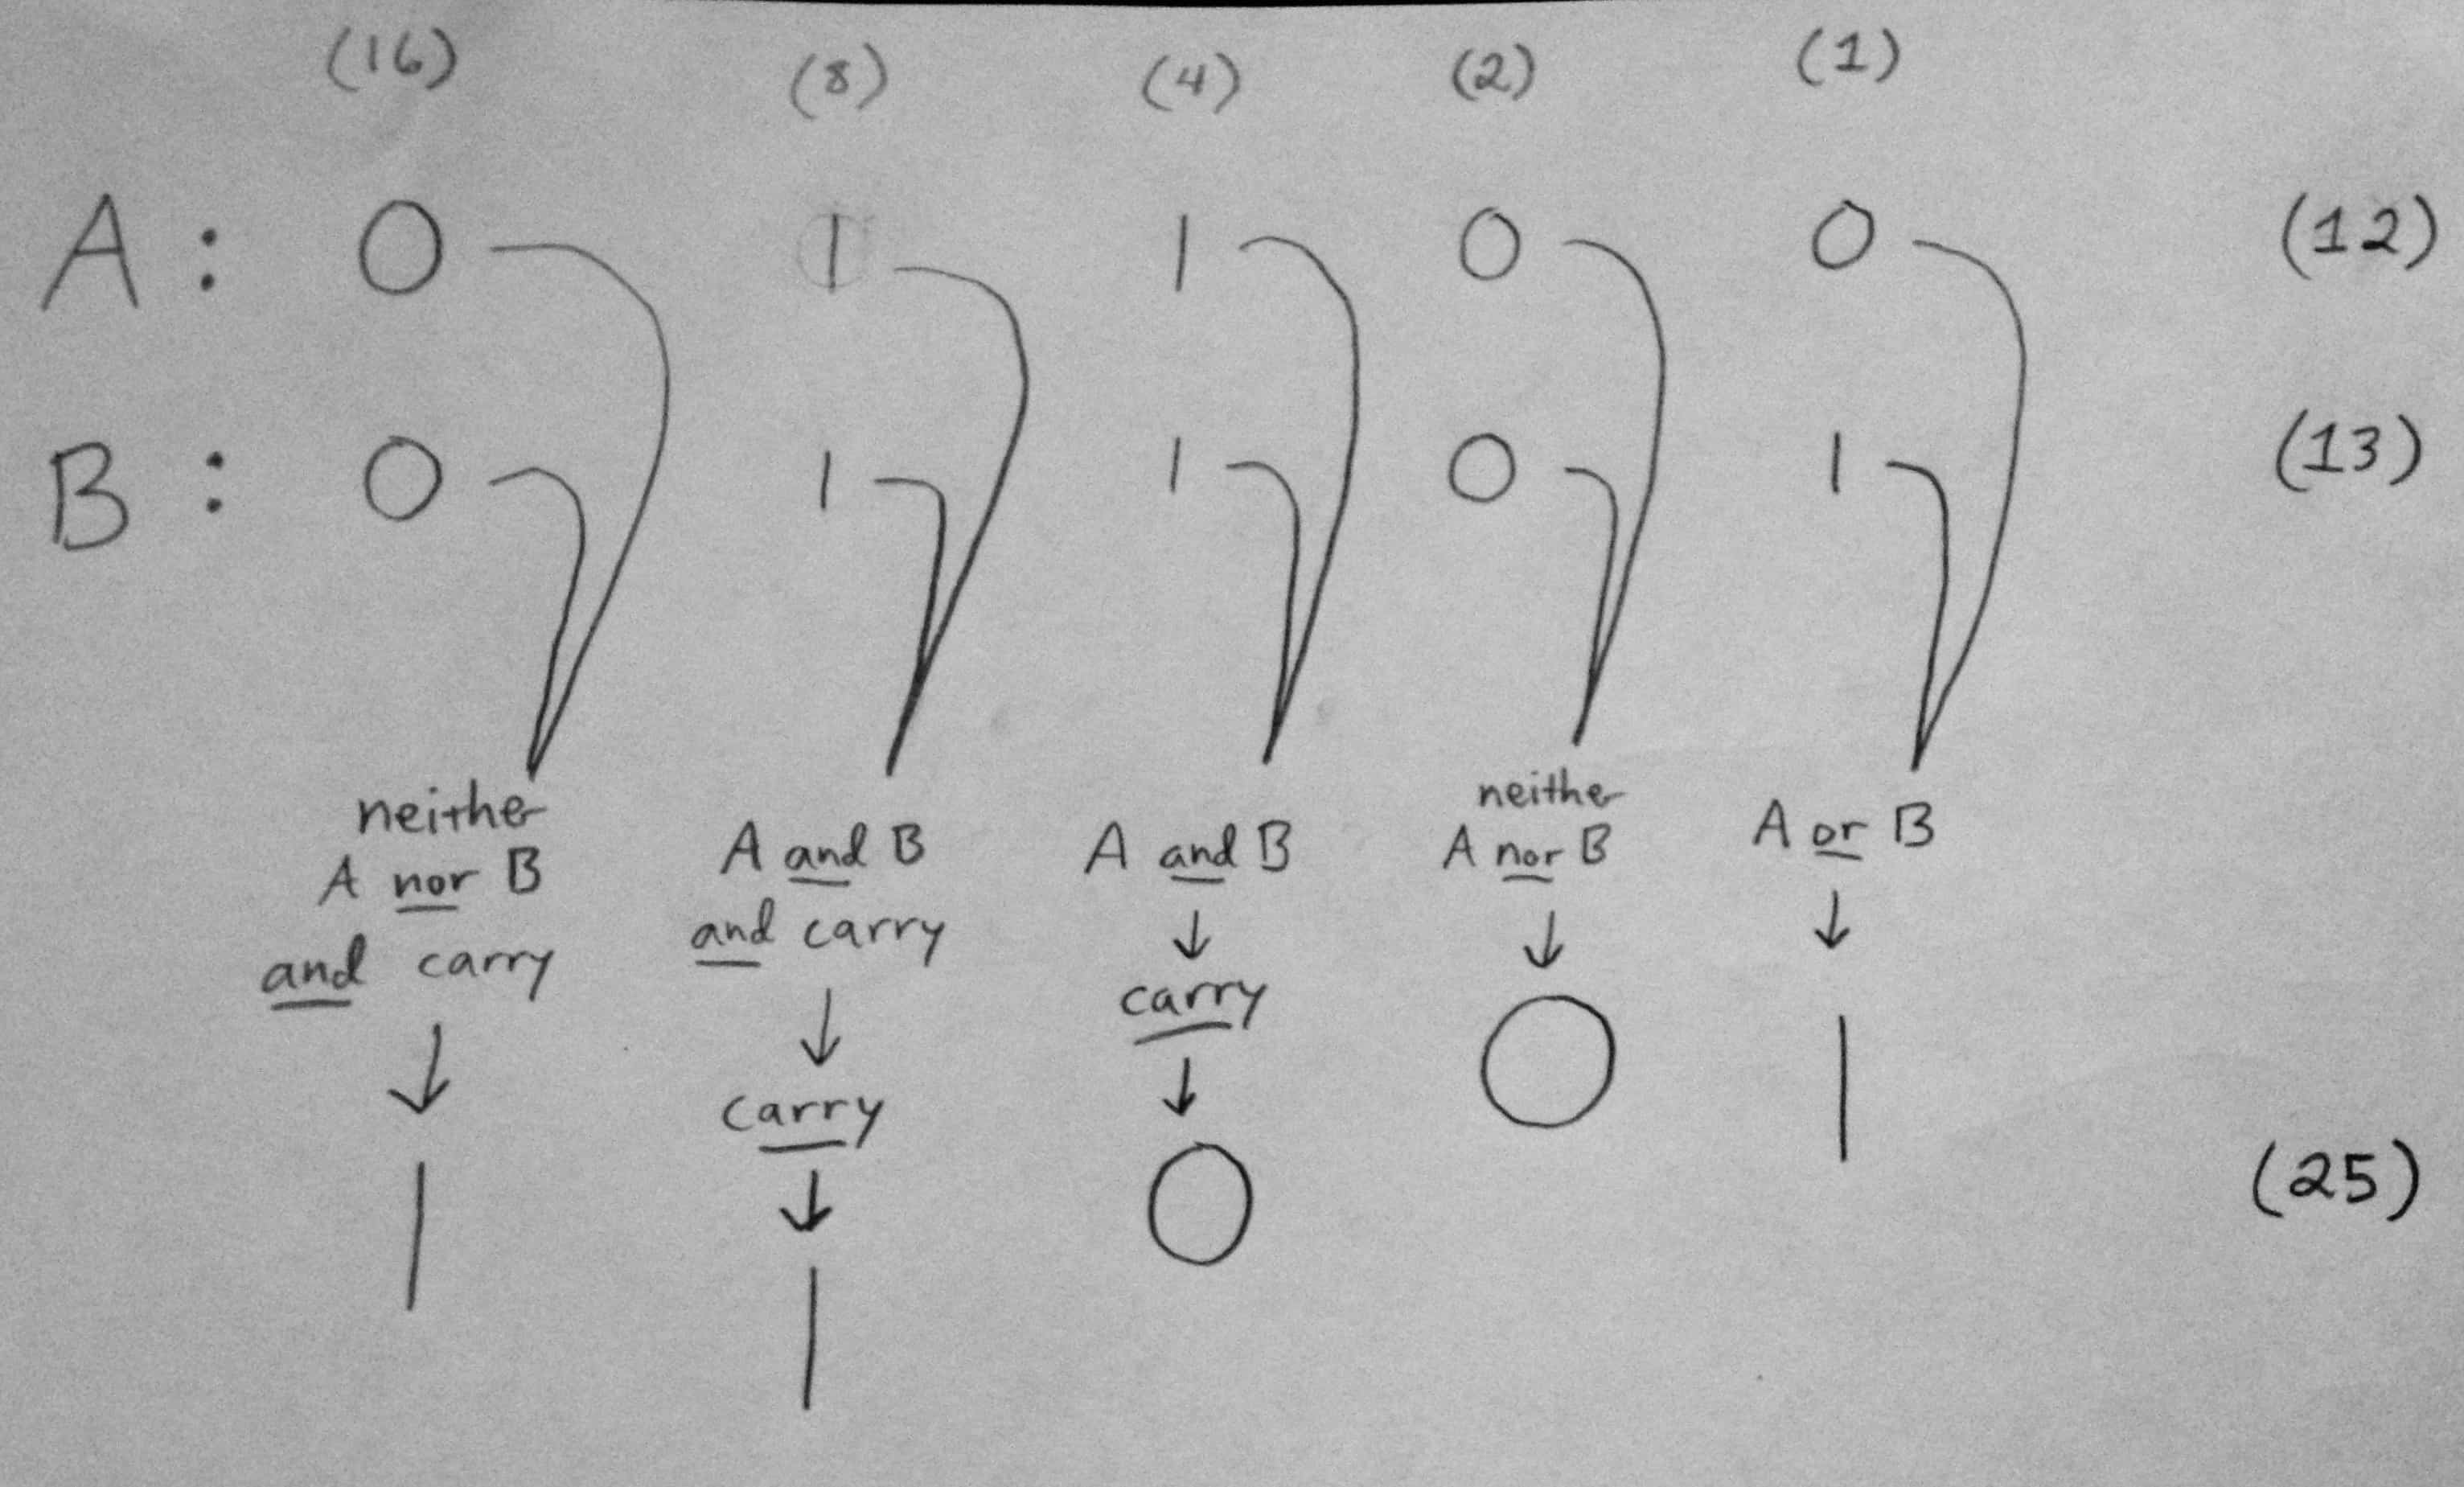 (16) (8) (4) (2) (1)
A : 0 1 1 0 0 (12)
B : 0 1 1 0 1 (13)
neither
A nor B
and carry
1
A and B
and carry
carry
1
A and B
carry
0
neither
A nor B
0
A or B
1
(25)